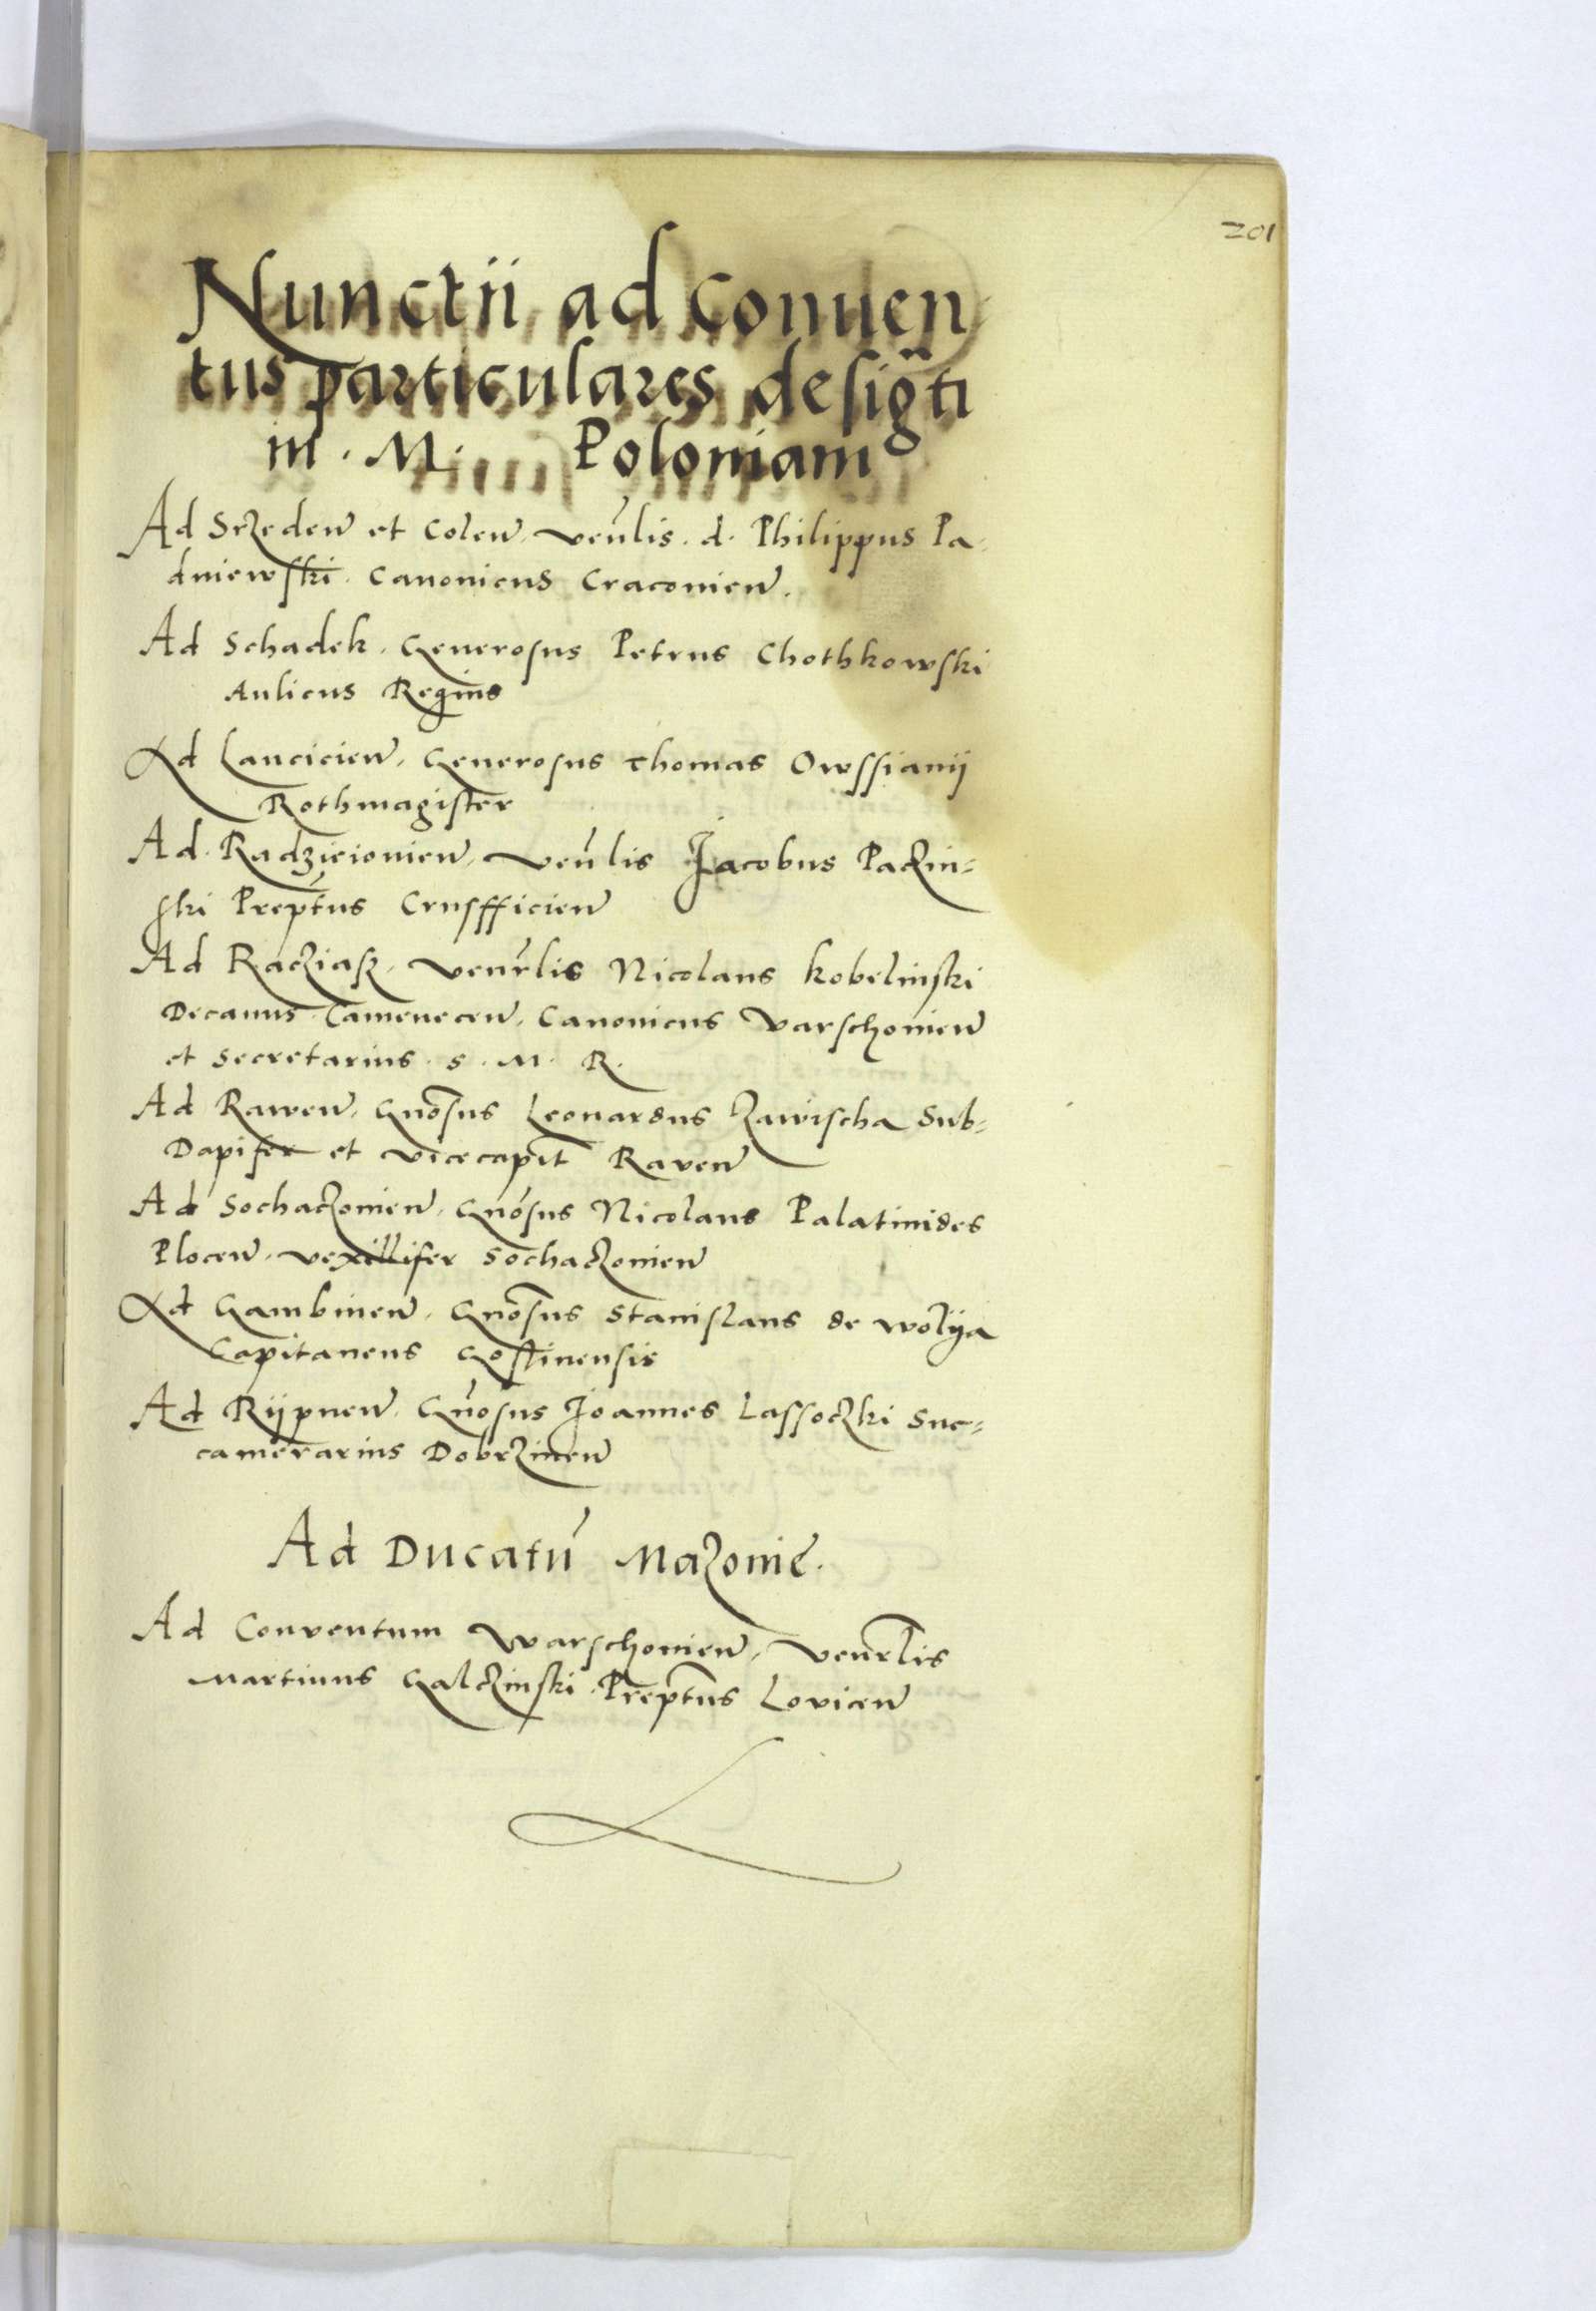 201
Nunctii ad conuen
tus particulares desig̃ti
in . M. Poloniam
Ad Srzeden et Colen. veñlis. d. Philippus Pa-
dniewski. Canonicus Craconien.
Ad Schadek. Generosus Petrus Chothkowski
Aulicus Regius
Ad Lancicien. Generosus Thomas Owssianij
Rothmagister
Ad. Radzieiovien. veñlis Jacobus Paczin=
ski Prep̃tus Crusfficien
Ad Racziasz. venr̃lis Nicolaus Kobelinski
Decanus Camenecen. Canonicus Varschovien
et Secretarius. S. M. R.
Ad Rawen. Gñosus Leonardus Zawischa Sub=
Dapifer et vicecapit̃ Raven
Ad Sochaczovien. Gñosus Nicolaus Palatinides
Plocen. vexillifer Sochaczovien
Ad Gambinen. Gñosus Stanislaus de Wolya
Capitaneus Gostinensis
Ad Rijpnen. Gñosus Joannes Lassoczki Suc=
camerarius Dobrzinen
Ad Ducatũ Mazovie.
Ad Conventum Warschovien. venr̃lis
Martinus Galczinski Prep̃tus Lovicen